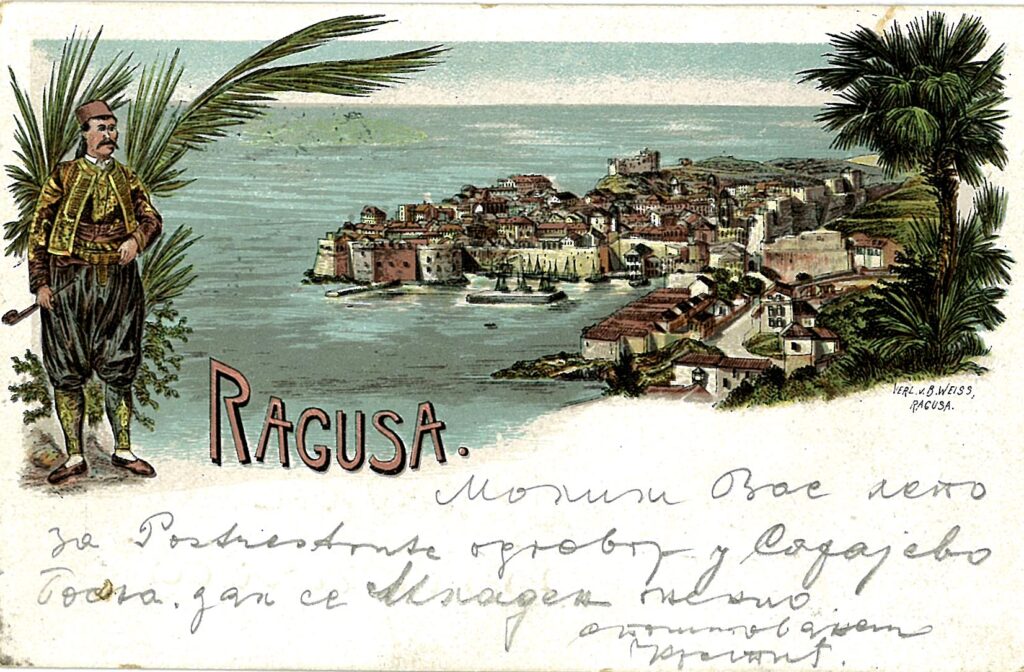 RAGUSA.
VERL. v. B. WEISS,
RAGUSA.
Молим Вас лепо
за Postrestante одговор у Сарајево
Босна. дал се Младен